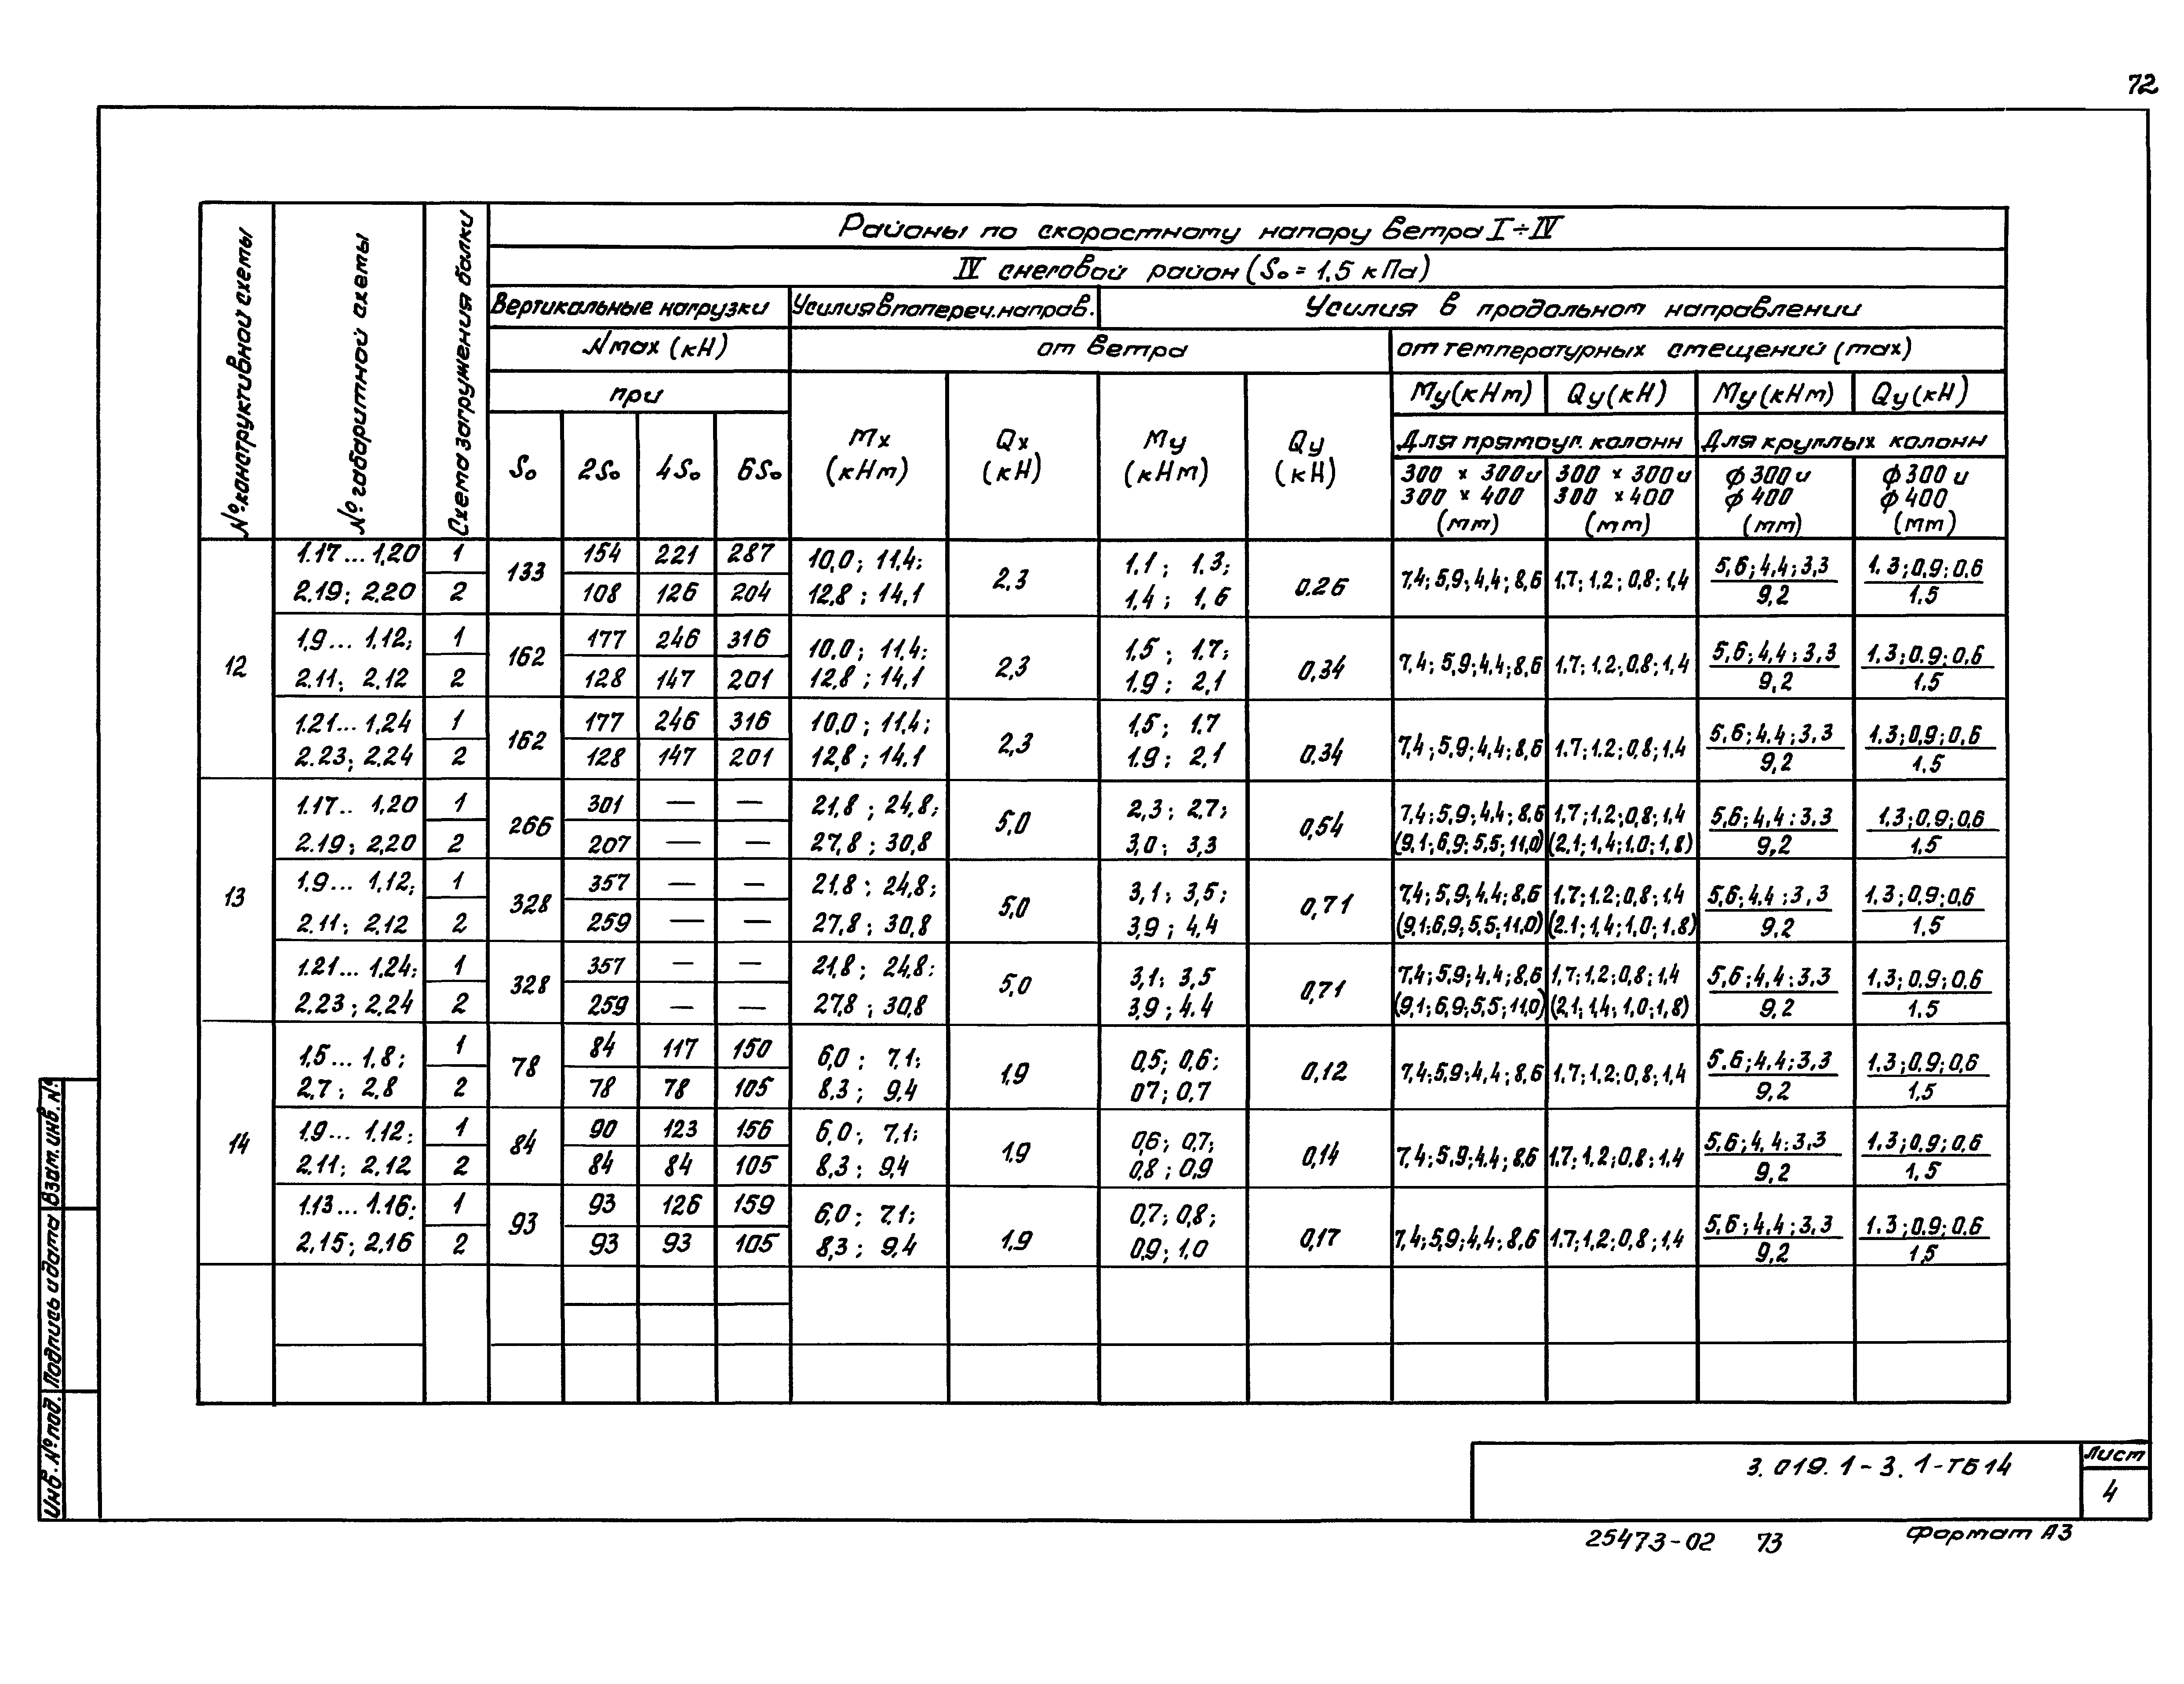 72
Районы по скоростному напору ветра I÷IV
IV снеговой район (S₀ = 1,5 кПа)
№ конструктивной схемы
№ габаритной схемы
Схема загружения балки
Вертикальные нагрузки
Усилия в попереч. направ.
Усилия в продольном направлении
Nmax (кН)
от ветра
от температурных смещений (max)
при
S₀ 2S₀ 4S₀ 6S₀
Mx (кНм)
Qx (кН)
My (кНм)
Qy (кН)
My (кНм) Qy (кН) My (кНм) Qy (кН)
Для прямоуг. колонн Для круглых колонн
300 × 300 и 300 × 400 (мм)
300 × 300 и 300 × 400 (мм)
ф 300 и ф 400 (мм)
ф 300 и ф 400 (мм)
12
1.17... 1.20 1 133 154 221 287 10,0; 11,4; 2,3 1.1; 1.3; 0.26 7,4; 5,9; 4,4; 8,6 1.7; 1,2; 0,8; 1,4 5,6; 4,4; 3,3 1.3; 0,9; 0,6
2.19; 2.20 2 108 126 204 12,8; 14,1 1,4; 1,6 9,2 1.5
1.9... 1.12; 1 162 177 246 316 10,0; 11,4; 2,3 1,5; 1.7; 0,34 7,4; 5,9; 4,4; 8,6 1.7; 1,2; 0,8; 1,4 5,6; 4,4; 3,3 1.3; 0.9; 0,6
2.11; 2.12 2 128 147 201 12,8; 14,1 1.9; 2,1 9,2 1.5
1.21... 1,24 1 162 177 246 316 10,0; 11,4; 2,3 1,5; 1.7 0,34 7,4; 5,9; 4,4; 8,6 1.7; 1,2; 0,8; 1,4 5,6; 4,4; 3,3 1.3; 0,9; 0,6
2.23; 2.24 2 128 147 201 12,8; 14,1 1.9; 2,1 9,2 1.5
13
1.17.. 1,20 1 266 301 — — 21,8; 24,8; 5,0 2,3; 2,7; 0,54 7,4; 5,9; 4,4; 8,6 1.7; 1,2; 0,8; 1,4 5,6; 4,4; 3,3 1.3; 0,9; 0,6
2.19; 2,20 2 207 — — 27,8; 30,8 3,0; 3,3 (9,1; 6,9; 5,5; 11,0) (2,1; 1,4; 1,0; 1,8) 9,2 1,5
1.9... 1.12; 1 328 357 — — 21,8; 24,8; 5,0 3,1; 3,5; 0,71 7,4; 5,9; 4,4; 8,6 1.7; 1,2; 0,8; 1,4 5,6; 4,4; 3,3 1.3; 0,9; 0,6
2.11; 2.12 2 259 — — 27,8; 30,8 3,9; 4,4 (9,1; 6,9; 5,5; 11,0) (2.1; 1,4; 1,0; 1,8) 9,2 1,5
1.21... 1.24; 1 328 357 — — 21,8; 24,8; 5,0 3,1; 3,5 0,71 7,4; 5,9; 4,4; 8,6 1,7; 1,2; 0,8; 1,4 5,6; 4,4; 3,3 1.3; 0.9; 0,6
2.23; 2.24 2 259 — — 27,8; 30,8 3,9; 4.4 (9,1; 6,9; 5,5; 11,0) (2,1; 1,4; 1,0; 1,8) 9,2 1.5
14
1,5... 1,8; 1 78 84 117 150 6,0; 7,1; 1,9 0,5; 0,6; 0,12 7,4; 5,9; 4,4; 8,6 1.7; 1,2; 0,8; 1,4 5,6; 4,4; 3,3 1.3; 0,9; 0,6
2,7; 2,8 2 78 78 105 8,3; 9,4 07; 0,7 9,2 1.5
1.9... 1.12; 1 84 90 123 156 6,0; 7,1; 1,9 0,6; 0,7; 0,14 7,4; 5,9; 4,4; 8,6 1.7; 1,2; 0,8; 1,4 5,6; 4,4; 3,3 1,3; 0,9; 0,6
2.11; 2.12 2 84 84 105 8,3; 9,4 0,8; 0,9 9,2 1,5
1.13... 1.16; 1 93 93 126 159 6,0; 7,1; 1,9 0,7; 0,8; 0,17 7,4; 5,9; 4,4; 8,6 1.7; 1,2; 0,8; 1,4 5,6; 4,4; 3,3 1.3; 0,9; 0,6
2,15; 2,16 2 93 93 105 8,3; 9,4 0,9; 1,0 9,2 1,5
Инв. № под. Подпись и дата Взам. инв. №
3.019.1-3.1-ТБ14
Лист
4
25473-02 73
Формат А3